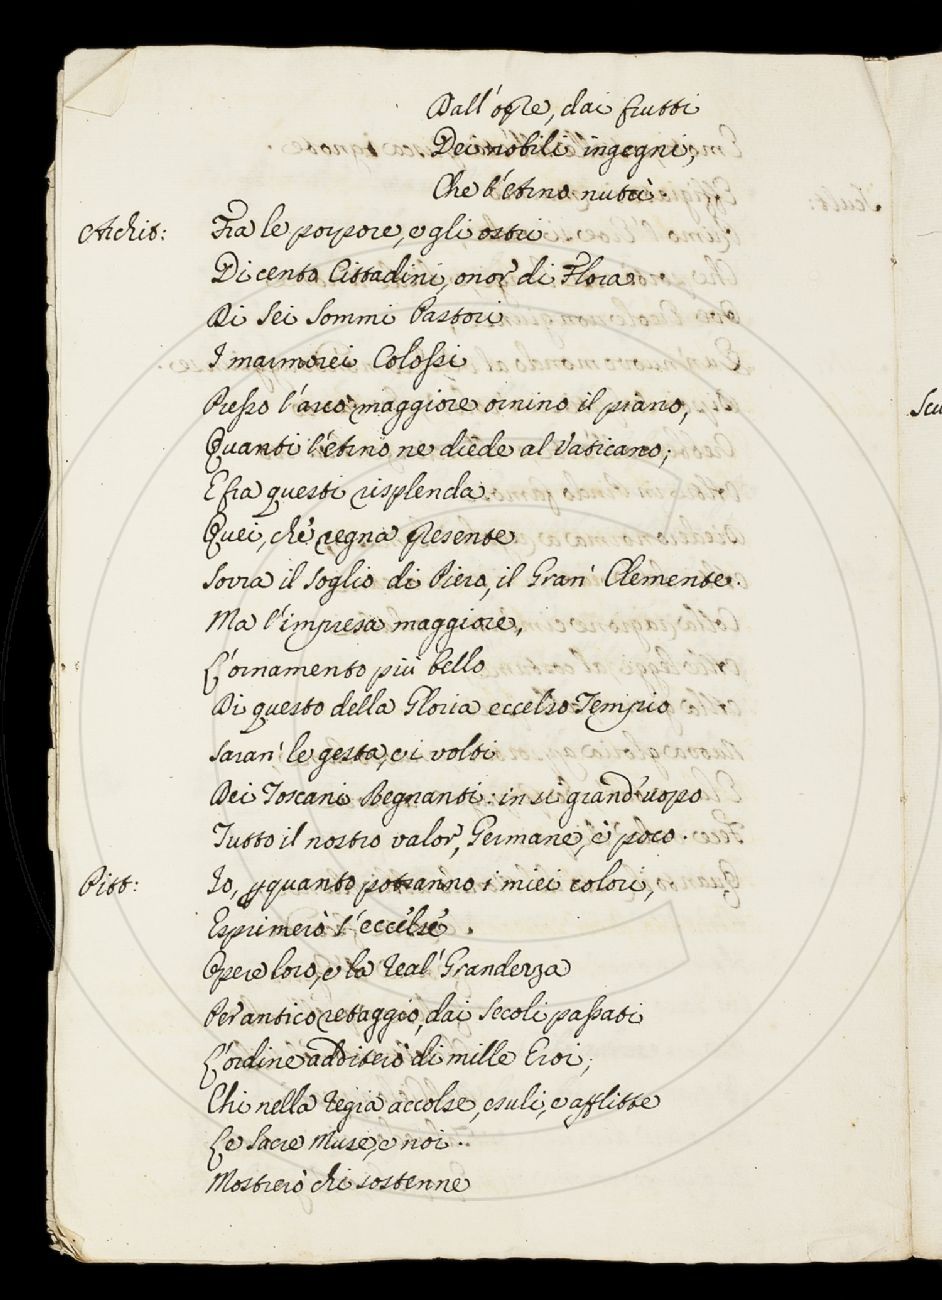 Dall'opre, dai frutti
Dei nobili ingegni,
Che l'etino nutrì.
Archit: Fra le porpore, e gli ostri
Di cento Cittadini, onor di Flora
Di sei sommi Pastori
I marmorei Colossi
Presso l'arco maggiore ornino il piano,
Quanti l'etino ne diede al Vaticano;
E fra questi risplenda
Quei, che regna presente
Sovra il soglio di Piero, il Gran' Clemente.
Ma l'impresa maggiore,
L'ornamento più bello
Di questo della Gloria eccelso Tempio
Saran' le gesta, e i volti
Dei Toscani Regnanti: in sì grand'uopo
Tutto il nostro valor, Germane, è poco.
Pitt: Io, per quanto potranno i miei colori,
Esprimerò l'eccelse
Opere loro, e la real' Grandezza
Per antico retaggio, dai secoli passati
L'ordine additerò di mille Eroi;
Chi nella regia accolse, esuli, e afflitte
Le sacre Muse, e noi.
Mostrerò chi sostenne
Scu